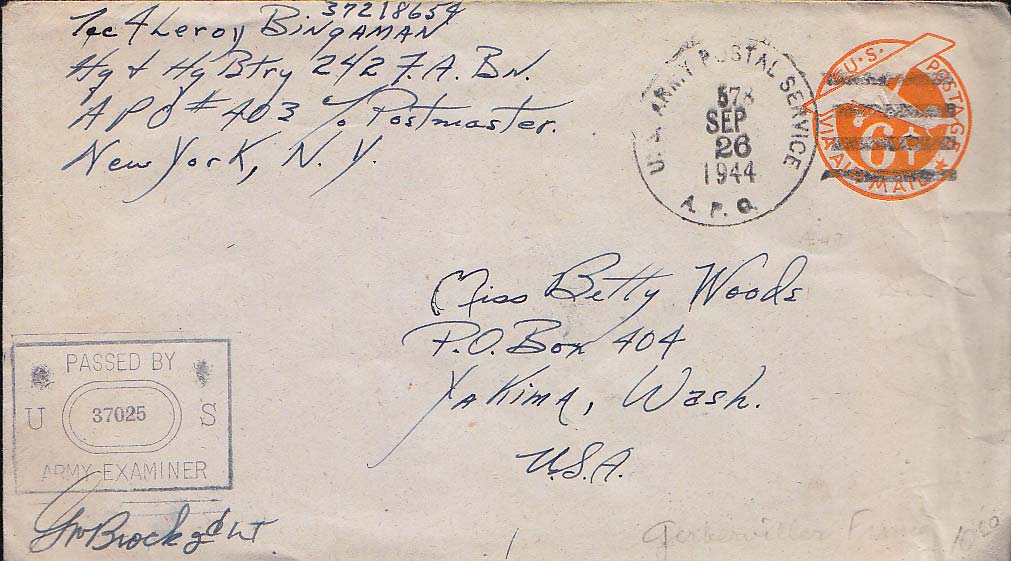 37218654
Tec 4 Leroy Bingaman
Hq & Hq Btry 242 F.A. Bn.
APO # 403 c/o Postmaster.
New York, N. Y.
U.S. ARMY POSTAL SERVICE
578
SEP
26
1944
A. P. O.
U.S. POSTAGE
6¢
VIA AIR MAIL
Miss Betty Woods
P.O. Box 404
Yakima, Wash.
U.S.A.
PASSED BY
U 37025 S
ARMY EXAMINER
Brock 2d Lt
Gerberviller France
10.00